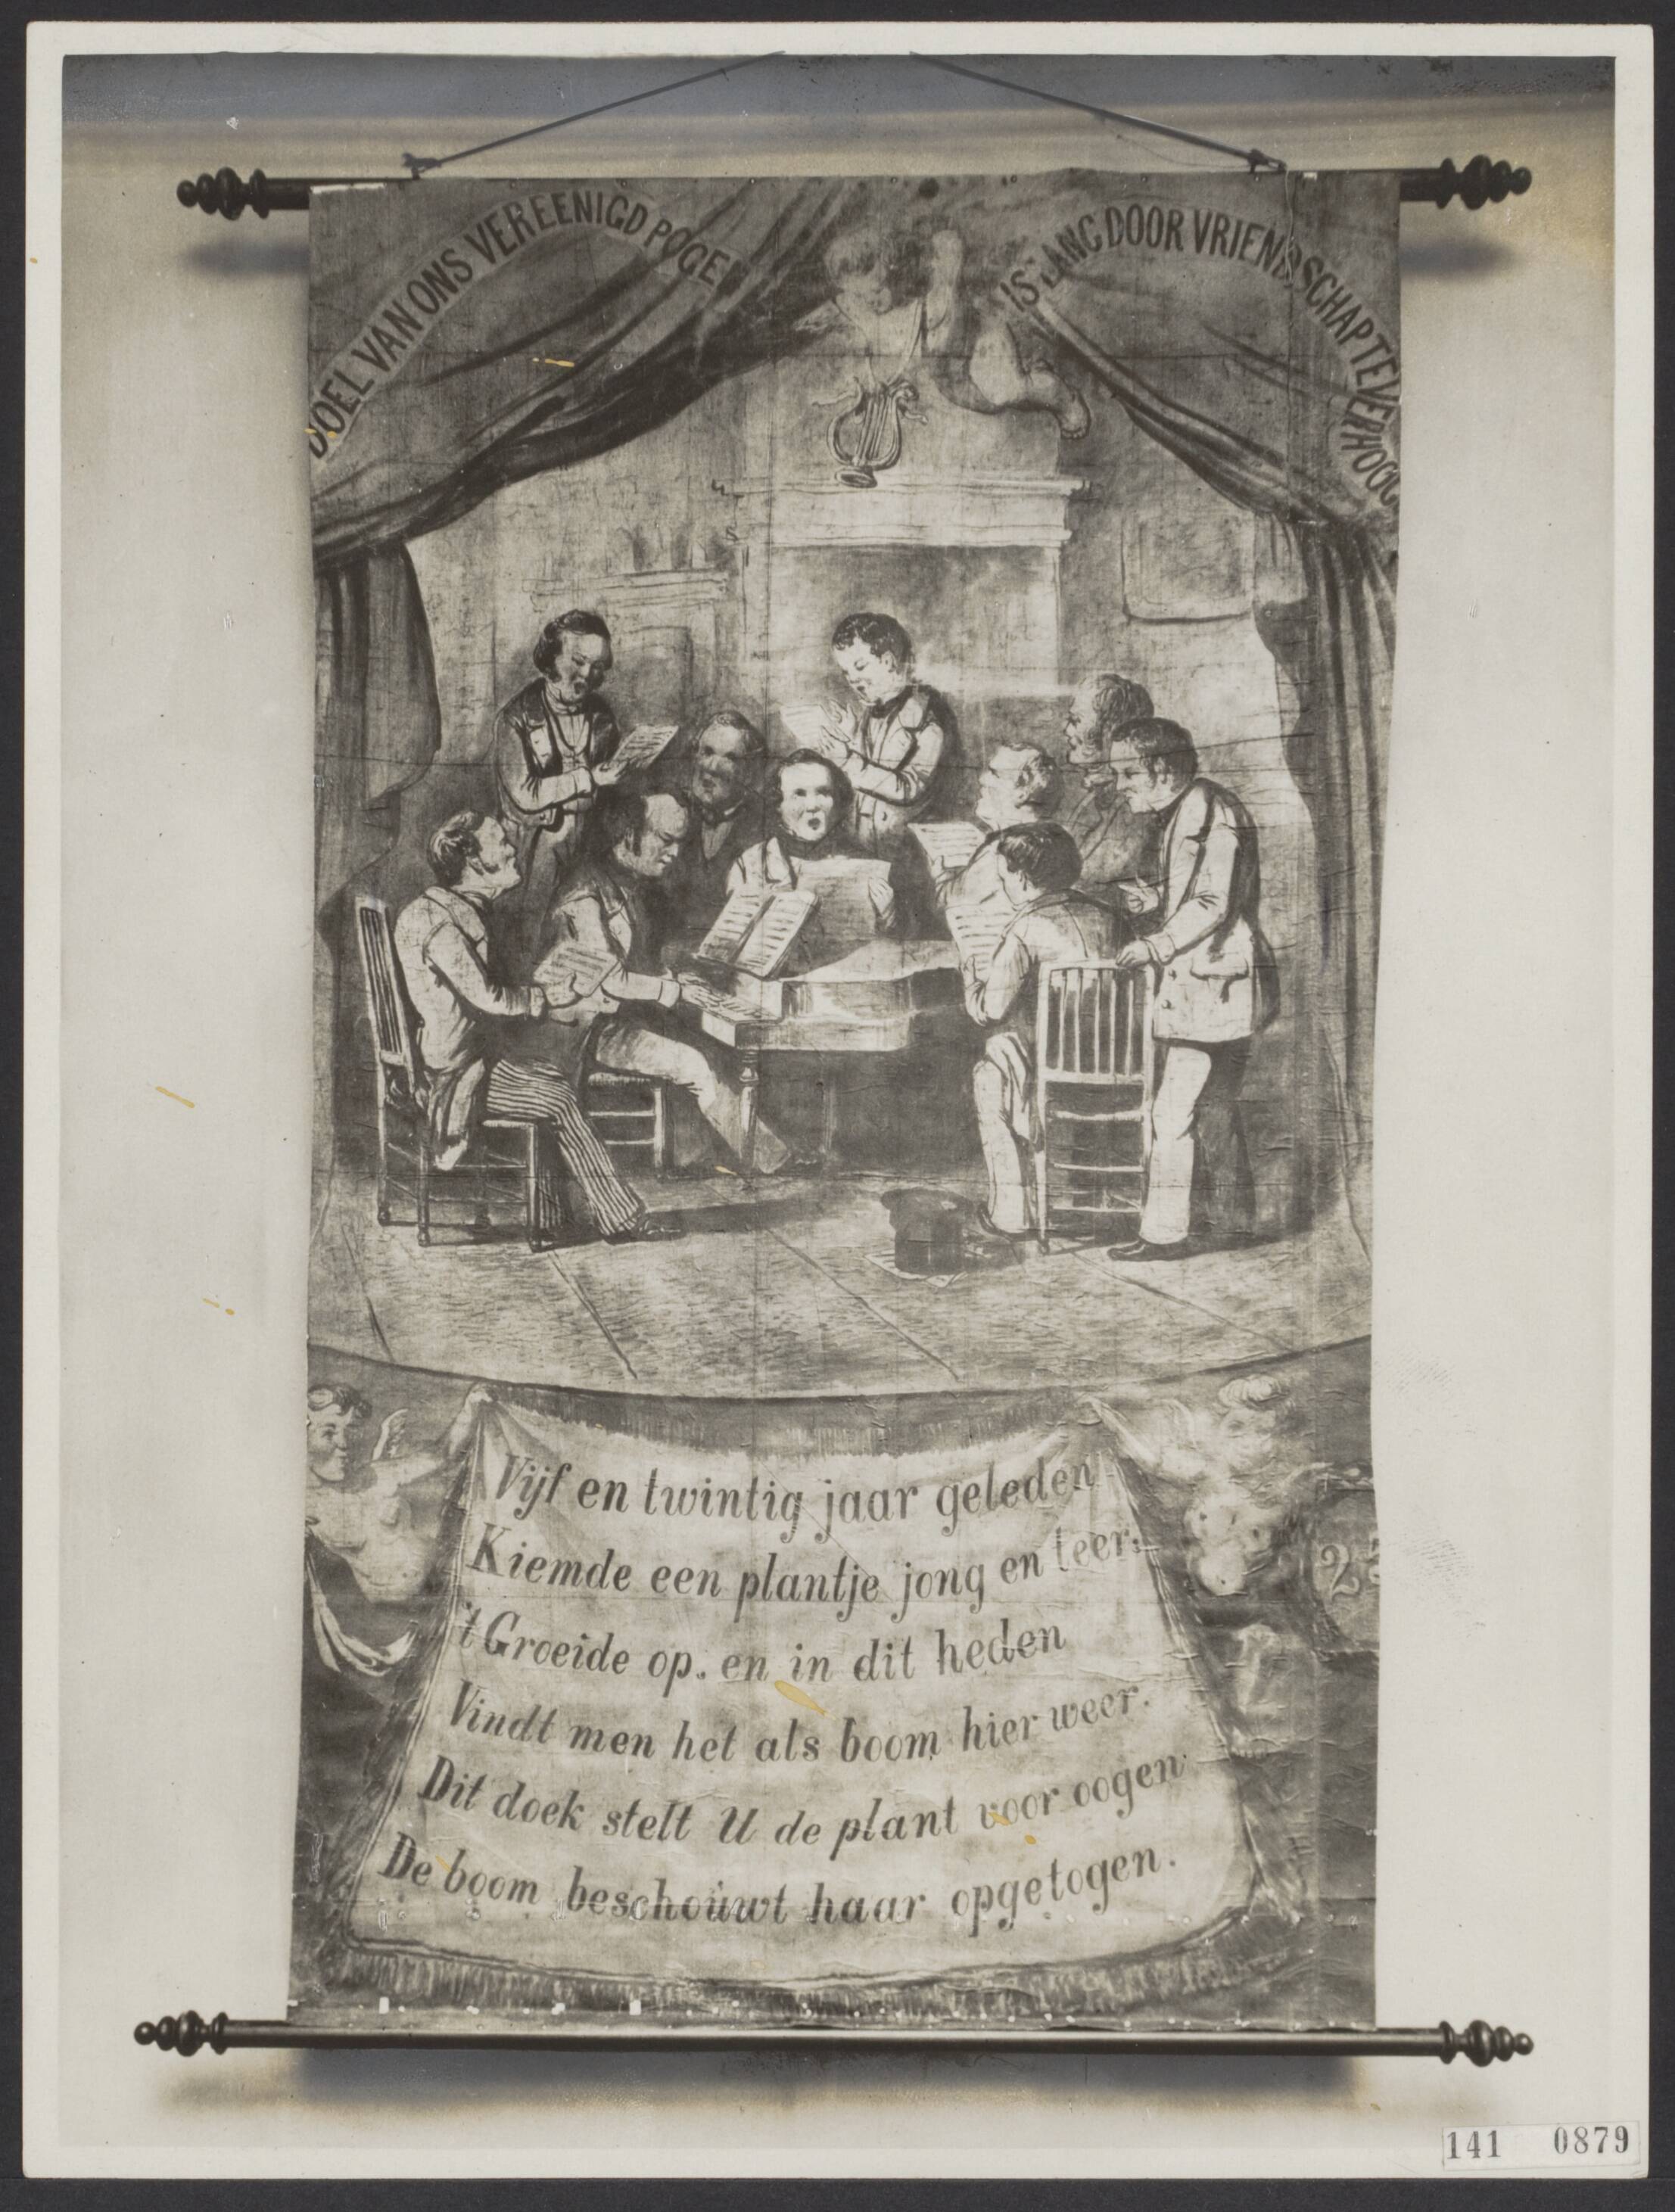 DOEL VAN ONS VEREENIGD POGE
IS ZANG DOOR VRIENDSCHAP TE VERHOOG
Vijf en twintig jaar geleden
Kiemde een plantje jong en teer.
't Groeide op. en in dit heden
Vindt men het als boom hier weer.
Dit doek stelt U de plant voor oogen
De boom beschouwt haar opgetogen.
25
141 0879